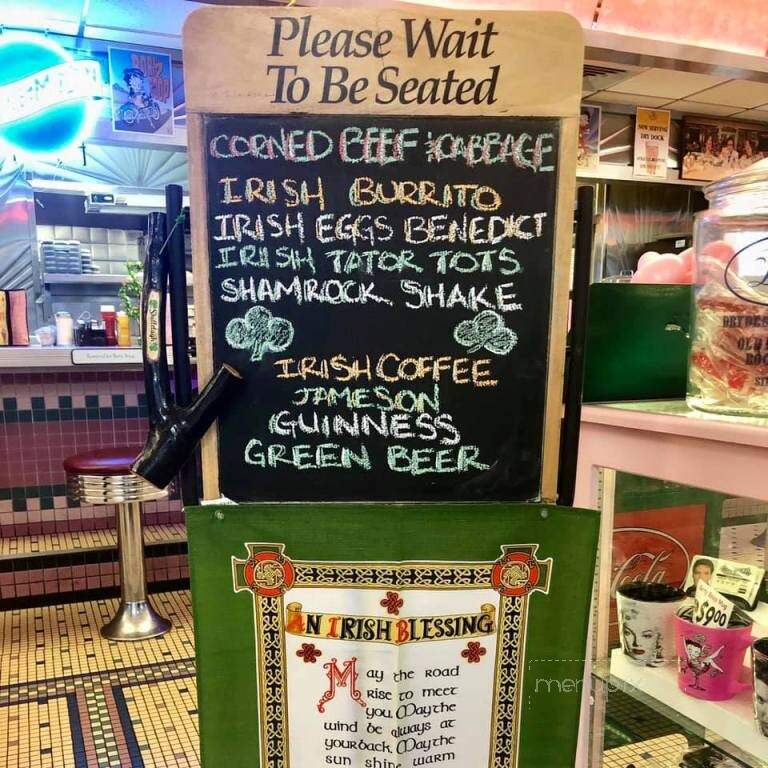 Please Wait
To Be Seated
CORNED BEEF & CABBAGE
IRISH BURRITO
IRISH EGGS BENEDICT
IRISH TATOR TOTS
SHAMROCK SHAKE
IRISH COFFEE
JAMESON
GUINNESS
GREEN BEER
AN IRISH BLESSING
May the road
rise to meet
you. May the
wind be always at
your back. May the
sun shine warm
NOW SERVING
DRY DOCK
$9.00
menupix